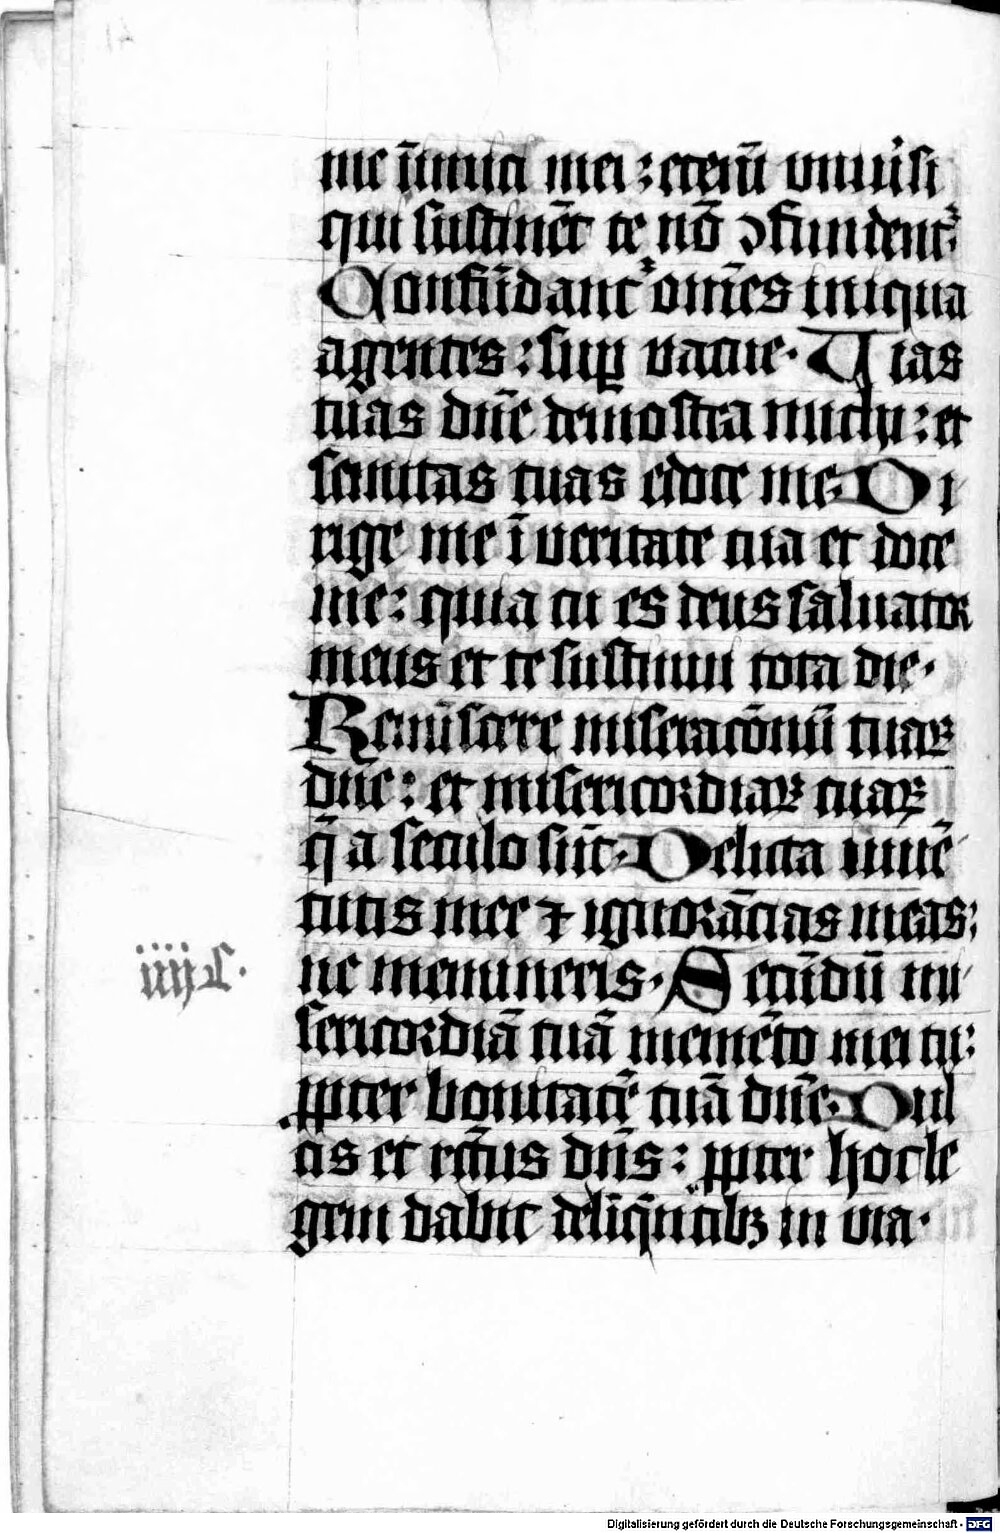 me īimici mei : eteni᷑ vniu̓si
qui sustinēt te nō ꝯfundentᷣ
Confūdantᷣ omēs iniqua
agentes : suꝑ vacue · Uias
tuas dn̄e demostra michi : et
semitas tuas edoce me · Di
rige me ī veritate tua et doce
me : quia tu es deus saluator
meus et te sustinui tota die ·
Remīscere miseracōnū tuaꝝ
dn̄e : et misericordiaꝝ tuaꝝ
q̄ a seculo sūt · Delicta iuuē
tutis mee ⁊ ignorācias meas :
ne memineris · Secūdū mi
sericordiā tuā memēto mei tu :
ꝓpter bonitatē tuā dn̄e · Dul
cis et rc̄tus dn̄s : ꝓpter hoc le
gem dabit deliq̄ntibꝫ in via ·
Digitalisierung gefördert durch die Deutsche Forschungsgemeinschaft - DFG